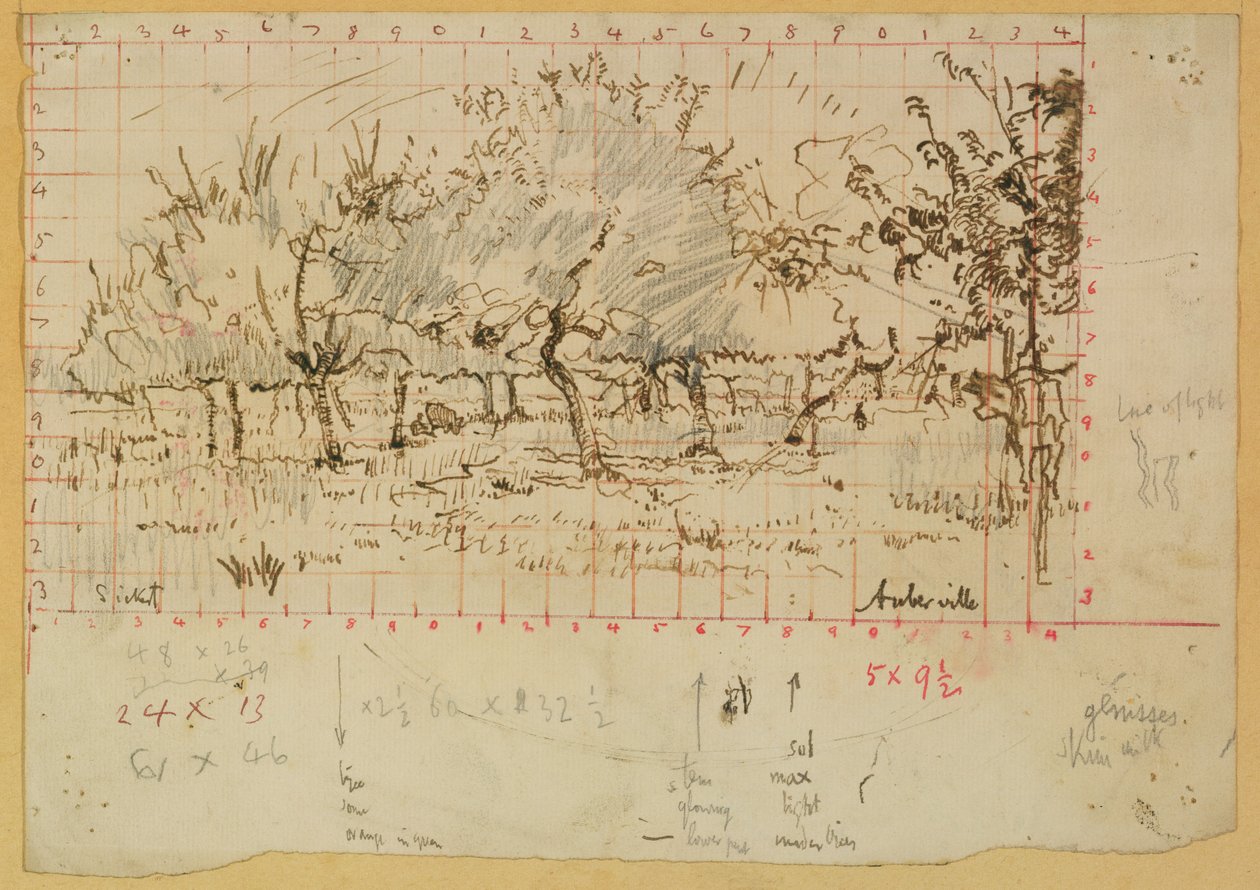 1 2 3 4 5 6 7 8 9 0 1 2 3 4 5 6 7 8 9 0 1 2 3 4
1 1
2 2
3 3
4 4
5 5
6 6
7 7
8 8
9 9
0 0
1 1
2 2
3 3
line of light
Sickert
Auberville
1 2 3 4 5 6 7 8 9 0 1 2 3 4 5 6 7 8 9 0 1 2 3 4
48 x 26
x 39
24 x 13
x 46
x 2 1/2 60 x 32 1/2
5 x 9 1/2
génisses.
skim milk
tree
some
orange in green
stem
glowing
lower part
sol
max
light
under trees